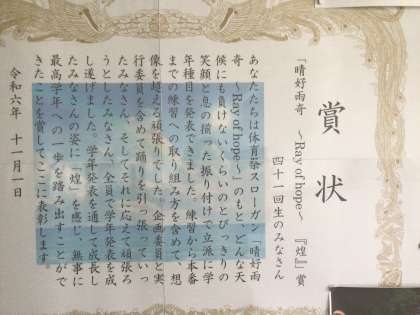 賞状
「晴好雨奇 ～Ray of hope～ 『煌』賞
四十一回生のみなさん
あなたたちは体育祭スローガン「晴好雨
奇 ～Ray of hope～」のもと、どんな天
候にも負けないくらいのとびっきりの
笑顔と息の揃った振り付けで立派に学
年種目を発表できました。練習から本番
までの練習への取り組み方を含めて、想
像を超える頑張りでした。企画委員と実
行委員を含めて踊りを引っ張っていっ
たみなさん、そしてそれに応えて頑張ろ
うとしたみなさん、全員で学年発表を成
し遂げました。学年発表を通して成長し
たみなさんの姿に「煌」を感じ、無事に
最高学年への一歩を踏み出すことがで
きたことを賞してここに表彰します。
令和六年 十一月一日